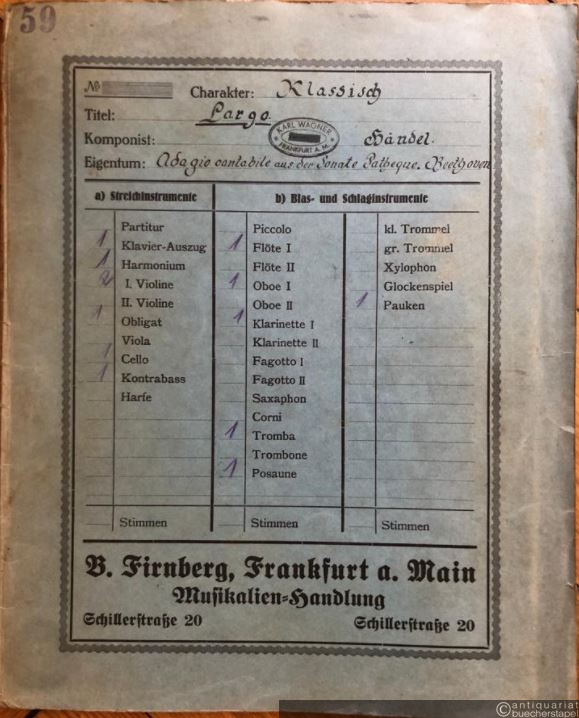 59
№
Charakter: Klassisch
Titel: Largo.
Komponist: Händel.
KARL WAGNER
FRANKFURT A. M.
Eigentum: Adagio cantabile aus der Sonate Patheque. Beethoven
a) Streichinstrumente
b) Blas- und Schlaginstrumente
Partitur
1 Klavier-Auszug
1 Harmonium
2 I. Violine
II. Violine
1 Obligat
Viola
1 Cello
1 Kontrabass
Harfe
Stimmen
Piccolo
1 Flöte I
Flöte II
1 Oboe I
Oboe II
1 Klarinette I
Klarinette II
Fagotto I
Fagotto II
Saxaphon
Corni
1 Tromba
Trombone
1 Posaune
Stimmen
kl. Trommel
gr. Trommel
Xylophon
Glockenspiel
1 Pauken
Stimmen
B. Firnberg, Frankfurt a. Main
Musikalien-Handlung
Schillerstraße 20 Schillerstraße 20
© antiquariat
buecherstapel